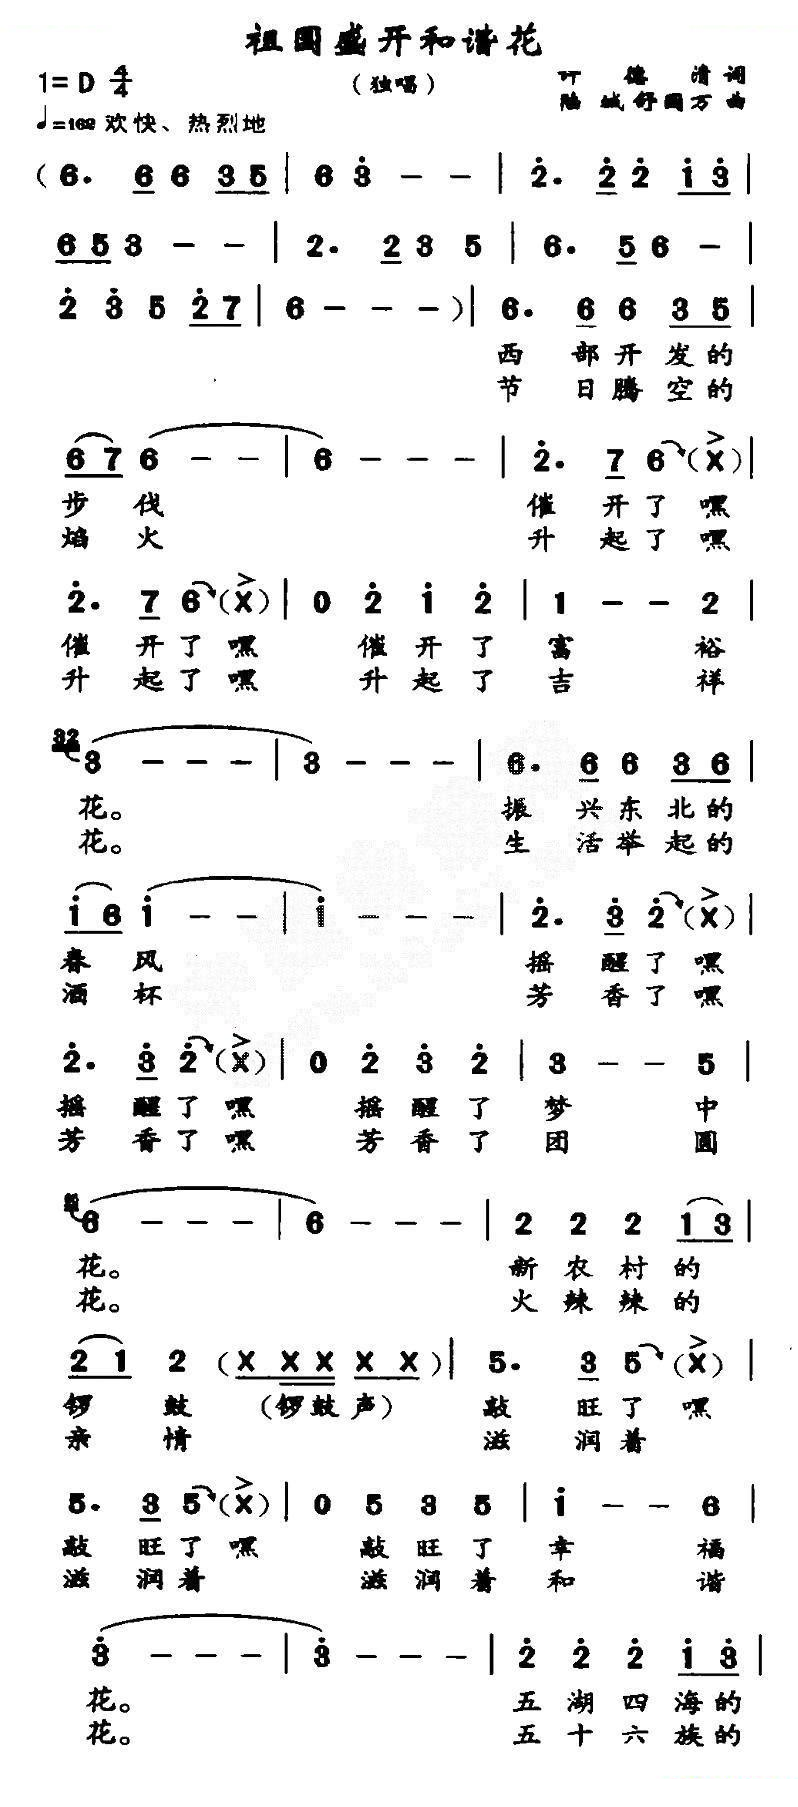 祖国盛开和谐花
1= D 4/4
（独唱）
叶 德 清 词
陆 城 舒国万 曲
♩=162 欢快、热烈地
(6· 6 6 3 5 | 6 3̇ - - | 2̇· 2̇ 2̇ 1̇ 3̇ |
6 5 3 - - | 2· 2 3 5 | 6· 5 6 - |
2̇ 3̇ 5 2̇ 7 | 6 - - - ) | 6· 6 6 3 5 |
西 部 开 发 的
节 日 腾 空 的
6 7 6 - - | 6 - - - | 2̇· 7 6 (X) |
步 伐 催 开 了 嘿
焰 火 升 起 了 嘿
2̇· 7 6 (X) | 0 2̇ 1̇ 2̇ | 1 - - 2 |
催 开 了 嘿 催 开 了 富 裕
升 起 了 嘿 升 起 了 吉 祥
32 3 - - - | 3 - - - | 6· 6 6 3 6 |
花。 振 兴 东 北 的
花。 生 活 举 起 的
1̇ 6 1̇ - - | 1̇ - - - | 2̇· 3̇ 2̇ (X) |
春 风 摇 醒 了 嘿
酒 杯 芳 香 了 嘿
2̇· 3̇ 2̇ (X) | 0 2̇ 3̇ 2̇ | 3 - - 5 |
摇 醒 了 嘿 摇 醒 了 梦 中
芳 香 了 嘿 芳 香 了 团 圆
6 - - - | 6 - - - | 2 2 2 1 3 |
花。 新 农 村 的
花。 火 辣 辣 的
2 1 2 (X X X X X) | 5· 3 5 (X) |
锣 鼓 （锣鼓声） 敲 旺 了 嘿
亲 情 滋 润 着
5· 3 5 (X) | 0 5 3 5 | 1̇ - - 6 |
敲 旺 了 嘿 敲 旺 了 幸 福
滋 润 着 滋 润 着 和 谐
3̇ - - - | 3̇ - - - | 2̇ 2̇ 2̇ 1̇ 3̇ |
花。 五 湖 四 海 的
花。 五 十 六 族 的